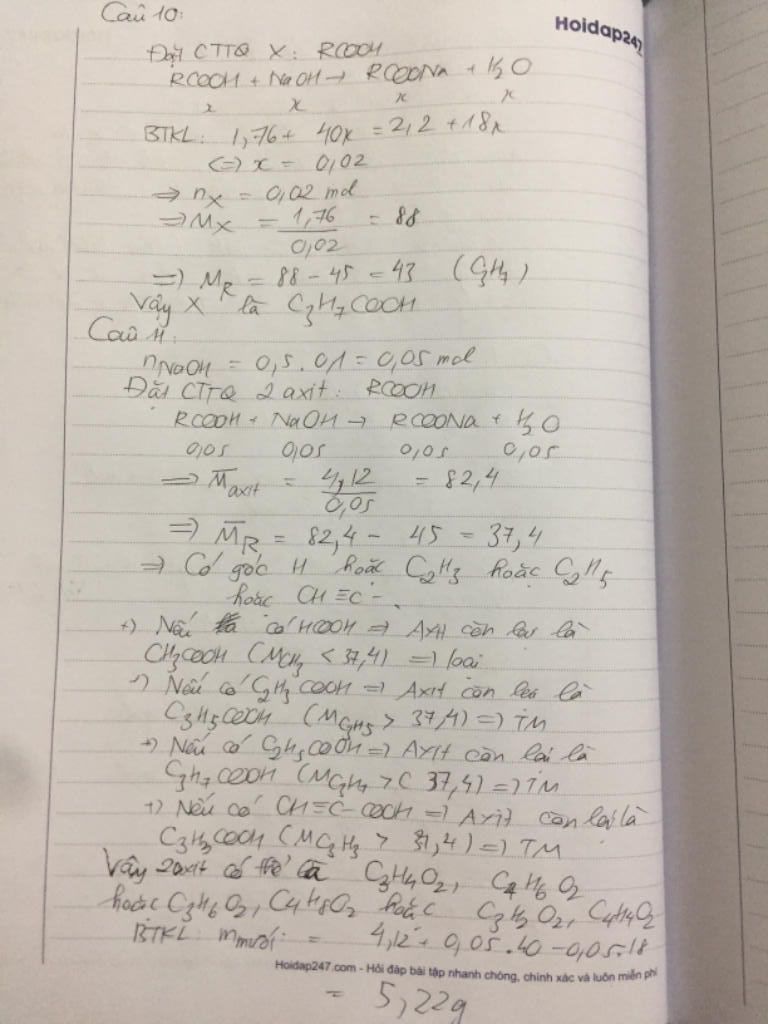 Câu 10:
Hoidap247
Đặt CTTQ X: RCOOH
RCOOH + NaOH → RCOONa + H2O
x x x x
BTKL: 1,76 + 40x = 2,2 + 18x
<=> x = 0,02
=> nX = 0,02 mol
=> MX = 1,76 / 0,02 = 88
=> MR = 88 - 45 = 43 (C3H7)
Vậy X là C3H7COOH
Câu 11:
nNaOH = 0,5 . 0,1 = 0,05 mol
Đặt CTTQ 2 axit: RCOOH
RCOOH + NaOH → RCOONa + H2O
0,05 0,05 0,05 0,05
=> M̅axit = 4,12 / 0,05 = 82,4
=> M̅R = 82,4 - 45 = 37,4
=> Có gốc H hoặc C2H3 hoặc C2H5
hoặc CH≡C-.
+) Nếu có HCOOH => Axit còn lại là
CH3COOH (MCH3 < 37,4) => loại
+) Nếu có C2H3COOH => Axit còn lại là
C3H5COOH (MC3H5 > 37,4) => TM
+) Nếu có C2H5COOH => Axit còn lại là
C3H7COOH (MC3H7 > ( 37,4) => TM
+) Nếu có CH≡C-COOH => Axit còn lại là
C3H3COOH (MC3H3 > 37,4) => TM
Vậy 2 axit có thể là C3H4O2, C4H6O2
hoặc C3H6O2, C4H8O2 hoặc C3H2O2, C4H4O2
BTKL: mmuối = 4,12 + 0,05.40 - 0,05.18
Hoidap247.com - Hỏi đáp bài tập nhanh chóng, chính xác và luôn miễn phí
= 5,22g